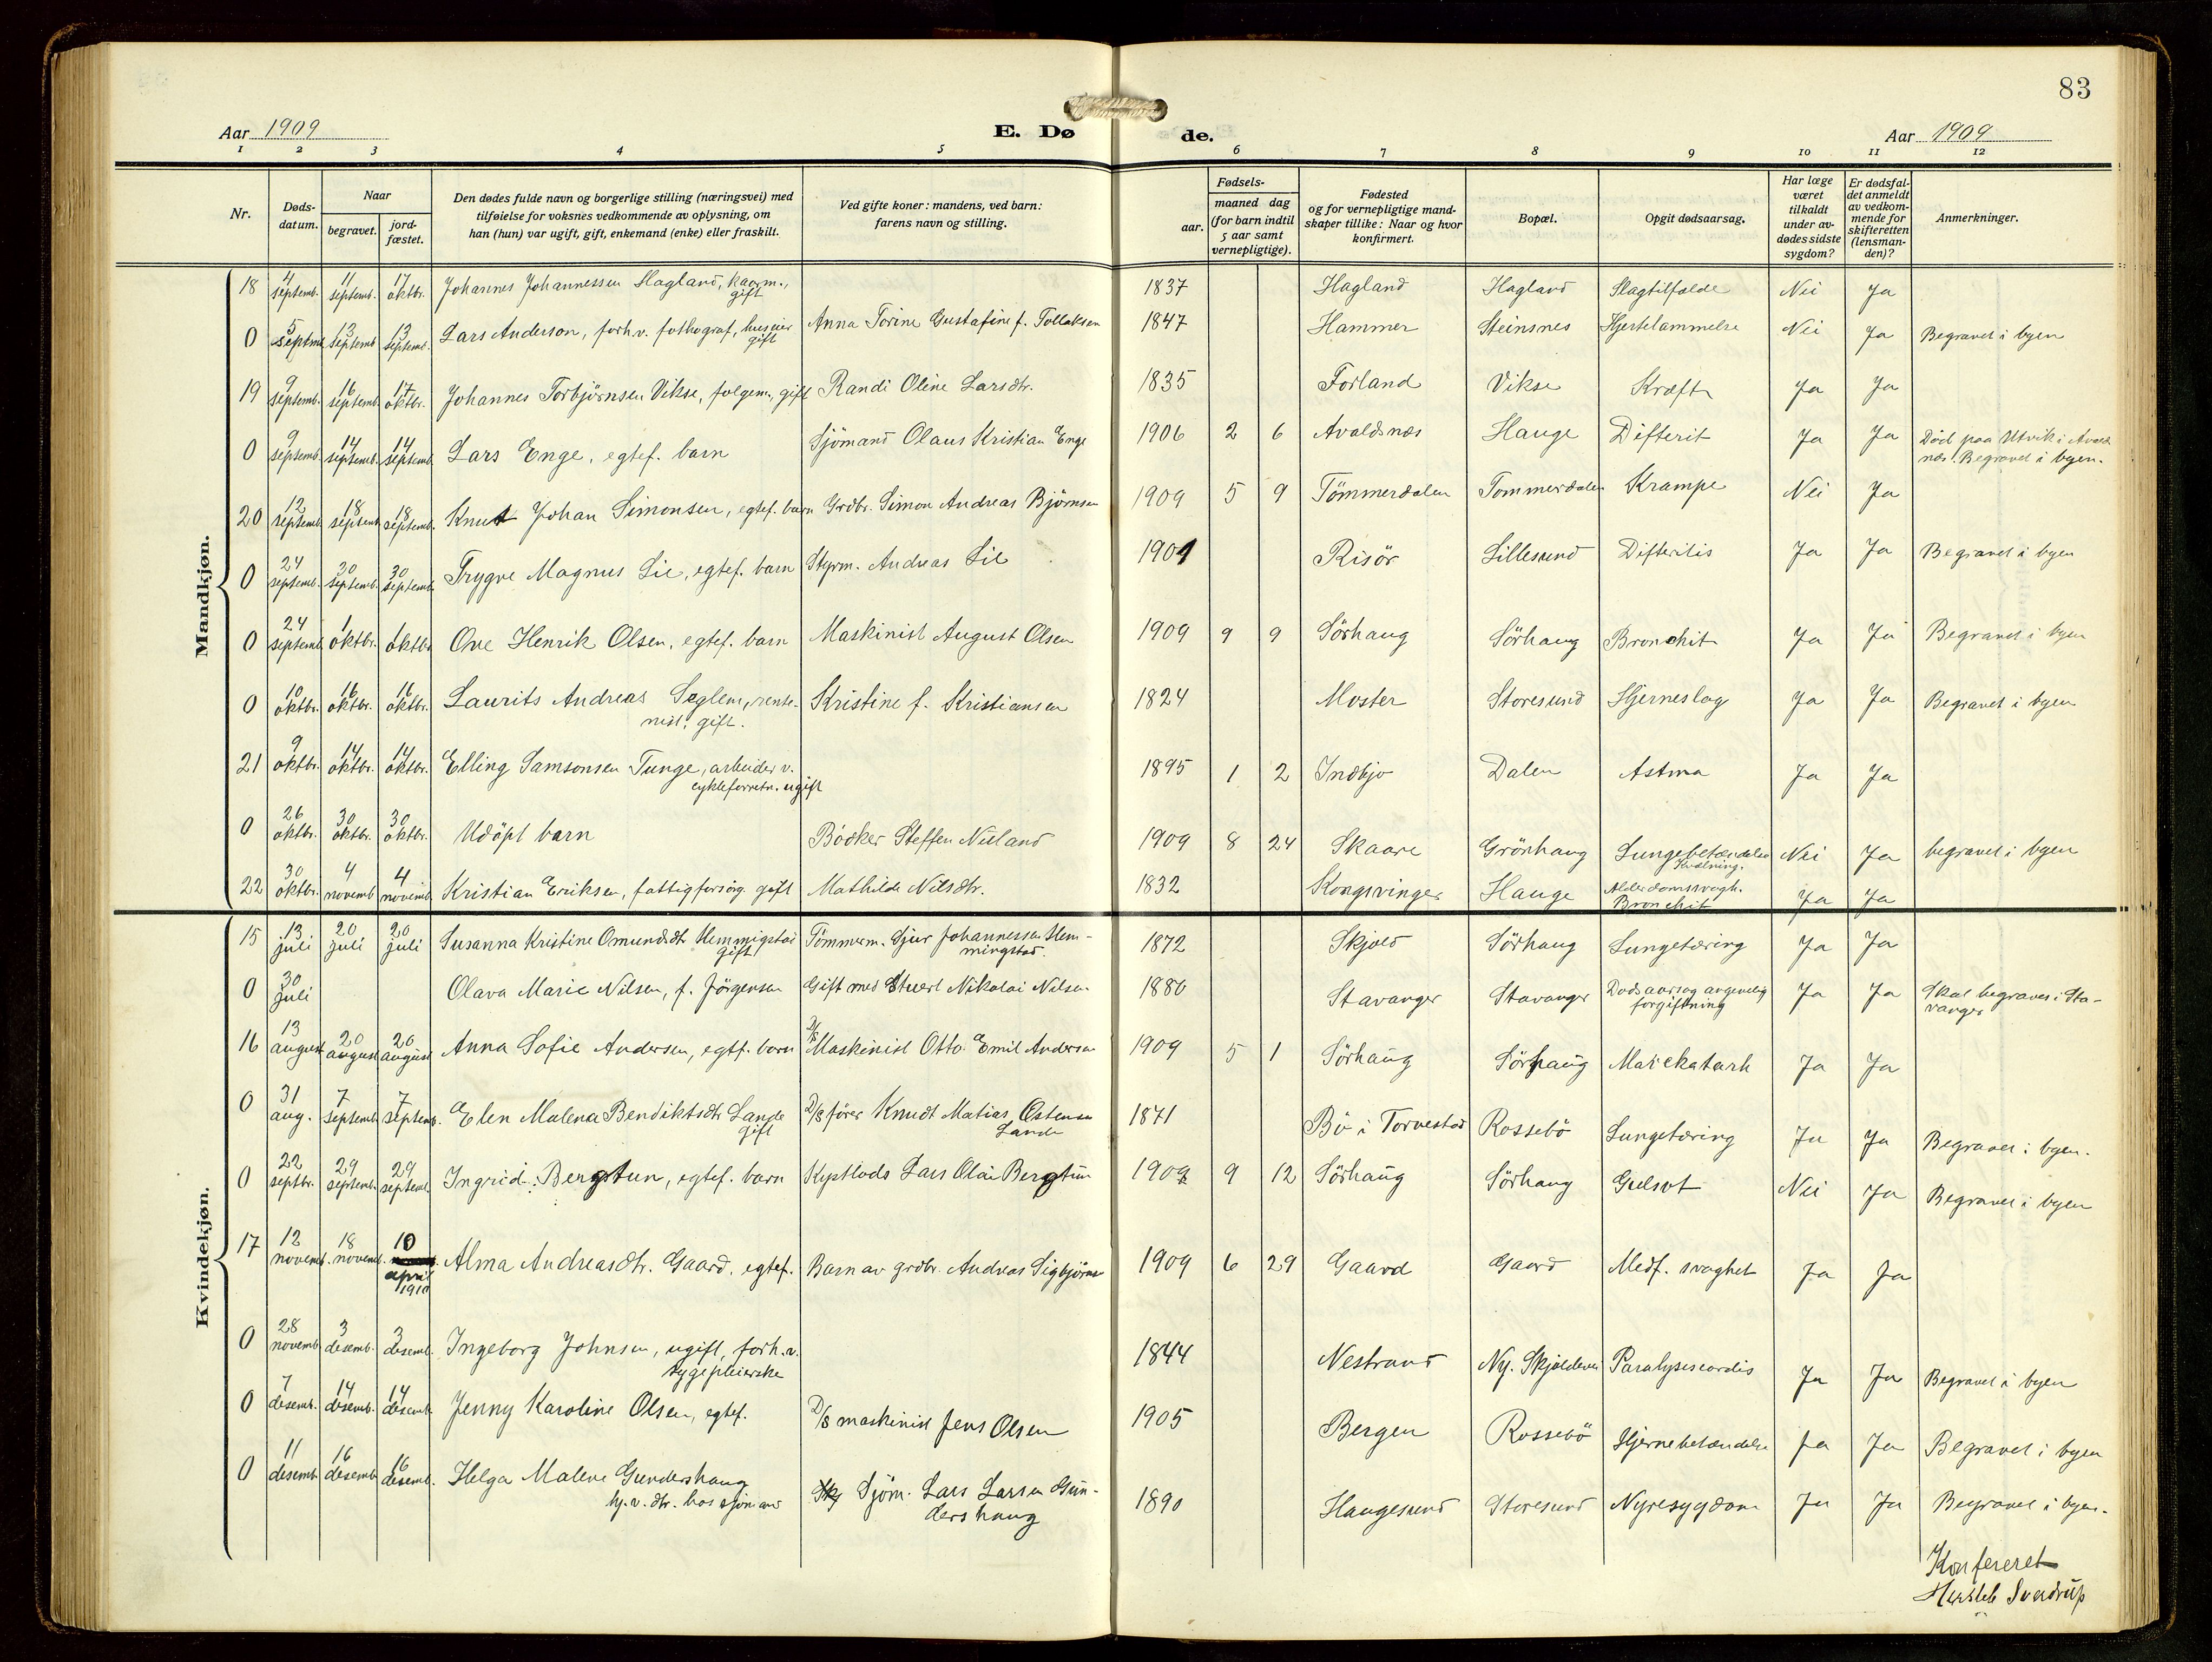 83
Aar 1909
E. Dø
de.
Aar 1909
1 2 3 4 5 6 7 8 9 10 11 12
Nr.
Døds-
datum.
Naar
begravet.
jord-
fæstet.
Den dødes fulde navn og borgerlige stilling (næringsvei) med
tilføielse for voksnes vedkommende av oplysning, om
han (hun) var ugift, gift, enkemand (enke) eller fraskilt.
Ved gifte koner: mandens, ved barn:
farens navn og stilling.
Fødsels-
aar.
maaned dag
(for barn indtil
5 aar samt
vernepligtige).
Fødested
og for vernepligtige mand-
skaper tillike: Naar og hvor
konfirmert.
Bopæl.
Opgit dødsaarsag.
Har læge
været
tilkaldt
under av-
dødes sidste
sygdom?
Er dødsfal-
det anmeldt
av vedkom-
mende for
skifteretten
(lensman-
den)?
Anmerkninger.
Mandkjøn.
18 4 septemb. 11 septemb. 17 oktbr. Johannes Johannessen Hagland, kaarm., gift 1837 Hagland Hagland Slagtilfælde Nei Ja
0 5 septmb 13 septemb 13 septemb. Lars Anderson, forh.v. fothograf, huseier gift Anna Torine Gustafine f. Tollaksen 1847 Hammer Steinsnes Hjertelammelse Nei Ja Begravet i byen
19 9 septemb. 16 septemb 17 oktbr. Johannes Torbjörnsen Vikse, folgem., gift Randi Oline Larsdtr. 1835 Forland Vikse Kræft Ja Ja
0 9 septemb. 14 septemb. 14 septemb. Lars Enge, egtef. barn Sjömand Olaus Kristian Enge 1906 2 6 Avaldsnæs Hauge Difterit Ja Ja Död paa Utvik i Avalds
næs. Begravet i byen.
20 12 septemb. 18 septemb 18 septemb. Knut Johan Simonsen, egtef. barn Grdbr. Simon Andreas Björnsen 1909 5 9 Tömmerdalen Tömmerdalen Krampe Nei Ja
0 24 septemb. 30 septemb. 30 septemb. Trygve Magnus Lie, egtef. barn Styrm. Andreas Lie 1901 Risör Lillesund Difteritis Ja Ja Begravet i byen
0 24 septemb. 1 oktbr. 1 oktbr Ove Henrik Olsen, egtef. barn Maskinist August Olsen 1909 9 9 Sörhaug Sörhaug Bronchit Ja Ja Begravet i byen
0 10 oktbr. 16 oktbr. 16 oktbr. Laurits Andreas Seglem, rente-
nist, gift. Kristine f. Kristiansen 1824 Moster Storesund Hjerneslag Ja Ja Begravet i byen
21 9 oktbr. 14 oktbr. 14 oktbr. Elling Samsonsen Tunge, arbeider v.
cykleforretn. ugift 1895 1 2 Indbjo Dalen Astma Ja Ja
0 26 oktbr. 30 oktbr. 30 oktbr. Udöpt barn Bödker Steffen Nieland 1909 8 24 Skaare Grönhaug Lungebetændelse
Kvælning. Nei Ja begravet i byen
22 30 oktbr. 4 novemb 4 novemb. Kristian Eriksen, fattigforsörg. gift Mathilde Nilsdtr. 1832 Kongsvinger Hauge Alderdomssvagh.
Bronchit Ja Ja
Kvindekjøn.
15 13 juli 20 juli 20 juli Susanna Kristine Omundsdtr Hemmigstad
gift Tömmerm. Sjur Johannessen Hem-
mingstad. 1872 Skjold Sörhaug Lungetæring Ja Ja
0 30 juli Olava Marie Nilsen, f. Jörgensen Gift med Stuert Nikolai Nilsen 1880 Stavanger Stavanger Dödsaarsag angivelig
forgiftning Ja Ja Skal begraves i Sta-
vanger
16 13 august 20 august 20 august Anna Sofie Andersen, egtf. barn D/S Maskinist Otto Emil Andersen 1909 5 1 Sörhaug Sörhaug Mavekatarh Ja Ja
0 31 aug. 7 septemb. 7 septemb. Elen Malena Bendiktsdtr Lande
gift D/S förer Knudt Matias Østensen
Lande 1871 Bö i Torvestad Rossebö Lungetæring Ja Ja Begravet i byen.
0 22 septbr. 29 septemb. 29 septemb. Ingrid Bergtun, egtef. barn Kystlods Lars Olai Bergtun 1907 9 12 Sörhaug Sörhaug Gulsot Nei Ja Begravet i byen
17 12 novemb. 18 novemb. 10 april
1910 Alma Andreasdtr. Gaard. egtef. Barn av grdbr. Andreas Sigbjörns 1909 6 29 Gaard Gaard Medf. svaghet Ja Ja
0 28 novemb. 3 desemb. 3 desemb. Ingeborg Johnsen, ugift, forh.v.
sygepleierske 1844 Nestrand Ny. Skjoldevei Paralysis cordis Ja Ja Begravet i byen
0 7 desemb. 14 desemb. 14 desemb Jenny Karoline Olsen, egtef. D/S maskinist Jens Olsen 1905 Bergen Rossebö Hjernebetændelse Ja Ja Begravet i byen
0 11 desemb 16 desemb 16 desemb. Helga Malene Gundershaug
hj.v. dtr. hos sjömand Sjöm. Lars Larsen Gun-
dershaug 1890 Haugesund Storesund Nyresygdom Ja Ja Begravet i byen.
Konfereret
Hersleb Sverdrup